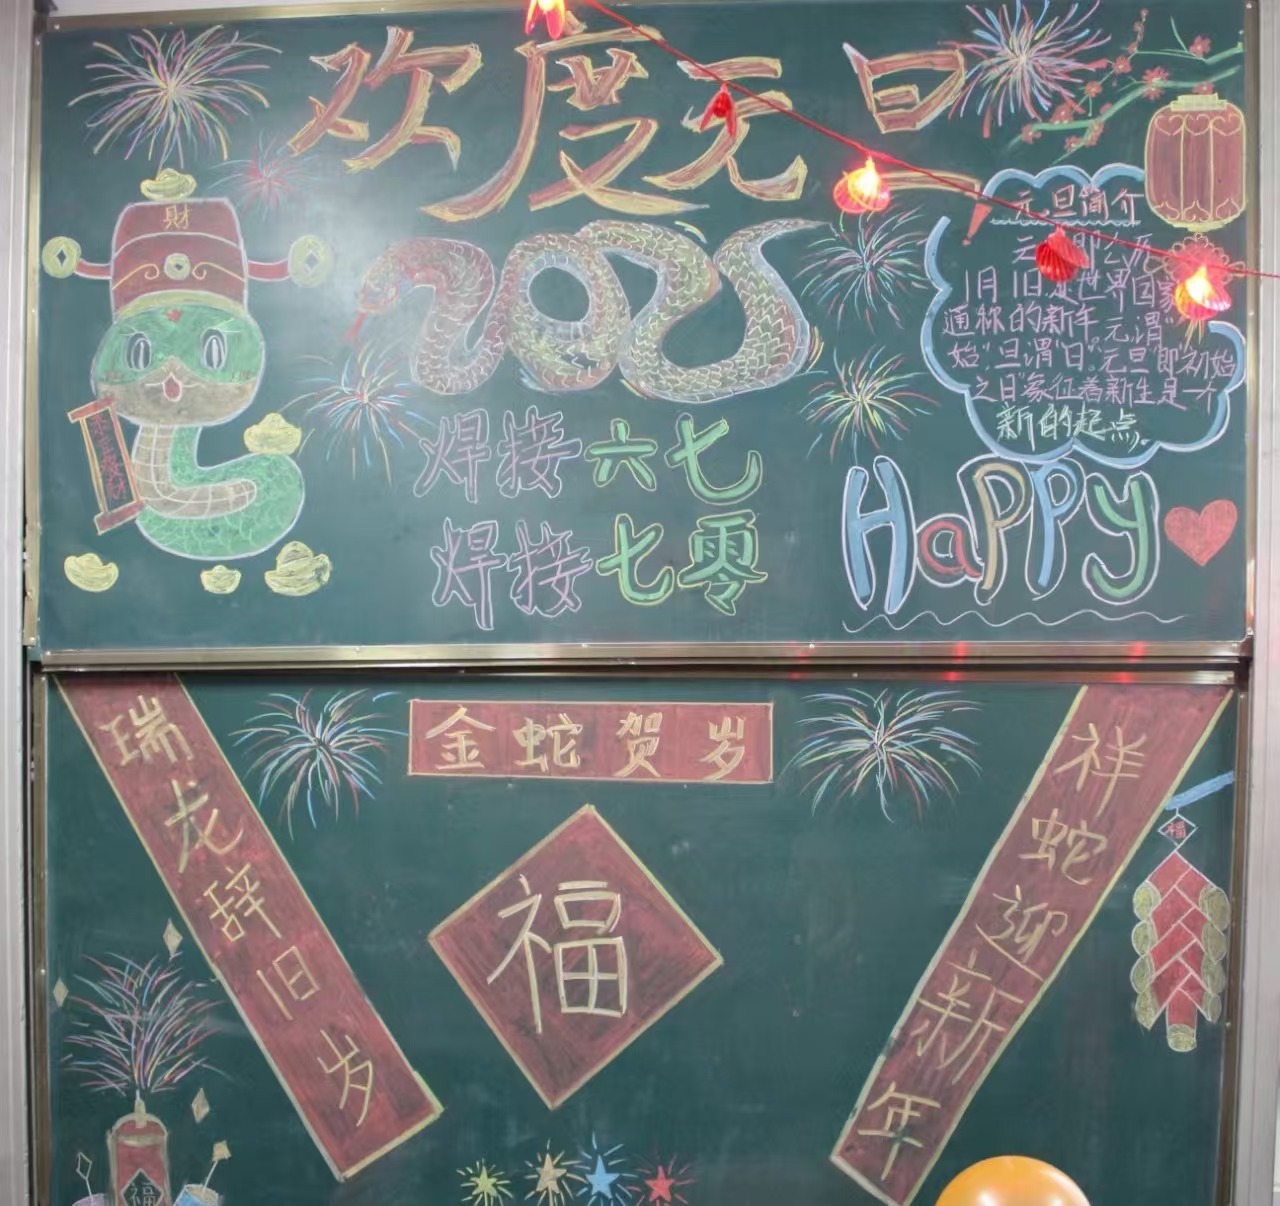 欢度元旦
財
2025
元旦简介
元 即公元
1月1日是世界国家
通称的新年"元"谓"
始"旦谓"日"元旦"即"初始
之日"象征着新生是一个
新的起点。
焊接六七
焊接七零
HaPPy
金蛇贺岁
瑞龙辞旧岁
福
祥蛇迎新年
福
福